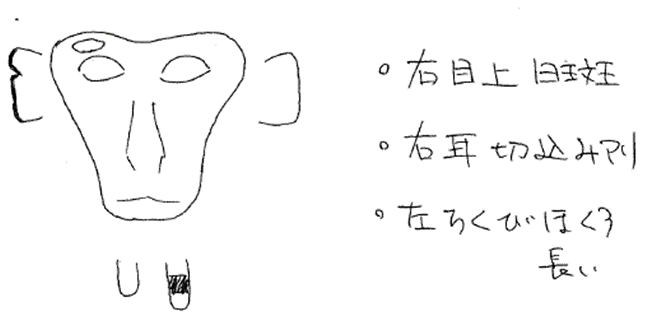 。右目上
。右耳切込みアリ
。左ちくびほくろ
長い